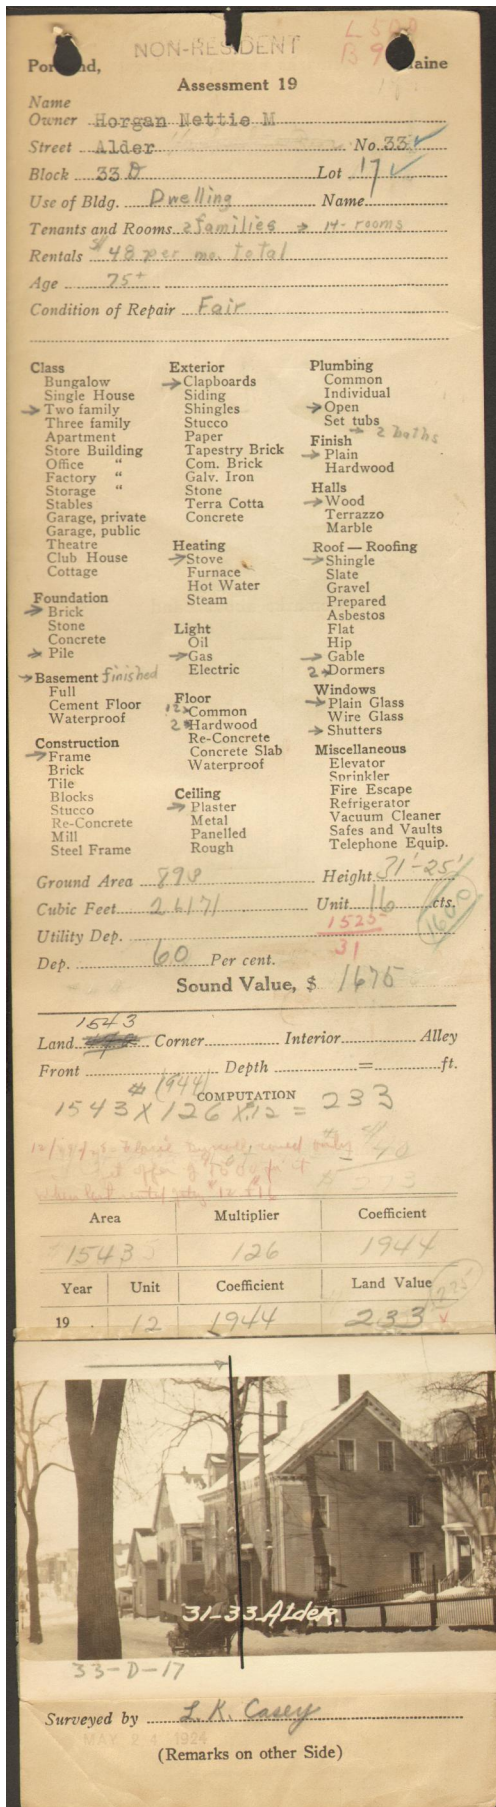 NON-RESIDENT
L 500
Assessment 19
Name
Owner Horgan Nettie M
Street Alder No. 33 ✓
Block 33 D Lot 17 ✓
Use of Bldg. Dwelling Name
Tenants and Rooms 2 families → 14- rooms
Rentals $48 per mo. total
Age 75+
Condition of Repair Fair
Class
Bungalow
Single House
→ Two family
Three family
Apartment
Store Building
Office "
Factory "
Storage "
Stables
Garage, private
Garage, public
Theatre
Club House
Cottage
Foundation
→ Brick
Stone
Concrete
→ Pile
→ Basement finished
Full
Cement Floor
Waterproof
Construction
→ Frame
Brick
Tile
Blocks
Stucco
Re-Concrete
Mill
Steel Frame
Exterior
→ Clapboards
Siding
Shingles
Stucco
Paper
Tapestry Brick
Com. Brick
Galv. Iron
Stone
Terra Cotta
Concrete
Heating
→ Stove
Furnace
Hot Water
Steam
Light
Oil
→ Gas
Electric
Floor
12 → Common
2 → Hardwood
Re-Concrete
Concrete Slab
Waterproof
Ceiling
→ Plaster
Metal
Panelled
Rough
Plumbing
Common
Individual
→ Open
Set tubs
→ 2 baths
Finish
→ Plain
Hardwood
Halls
→ Wood
Terrazzo
Marble
Roof — Roofing
→ Shingle
Slate
Gravel
Prepared
Asbestos
Flat
Hip
→ Gable
2 → Dormers
Windows
→ Plain Glass
Wire Glass
→ Shutters
Miscellaneous
Elevator
Sprinkler
Fire Escape
Refrigerator
Vacuum Cleaner
Safes and Vaults
Telephone Equip.
Ground Area 898 Height 31'-25'
Cubic Feet 26171 Unit 16 cts.
1600
Utility Dep. 1525
31
Dep. 60 Per cent.
Sound Value, $ 1675
1543
Land Corner Interior Alley
Front Depth = ft.
(1944)
COMPUTATION
1543 X 126 X .12 = 233
Area Multiplier Coefficient
1543 126 1944
Year Unit Coefficient Land Value
225
19 . 12 1944 233
31-33 Alder
33-D-17
Surveyed by L. K. Casey
MAY 2 1924
(Remarks on other Side)